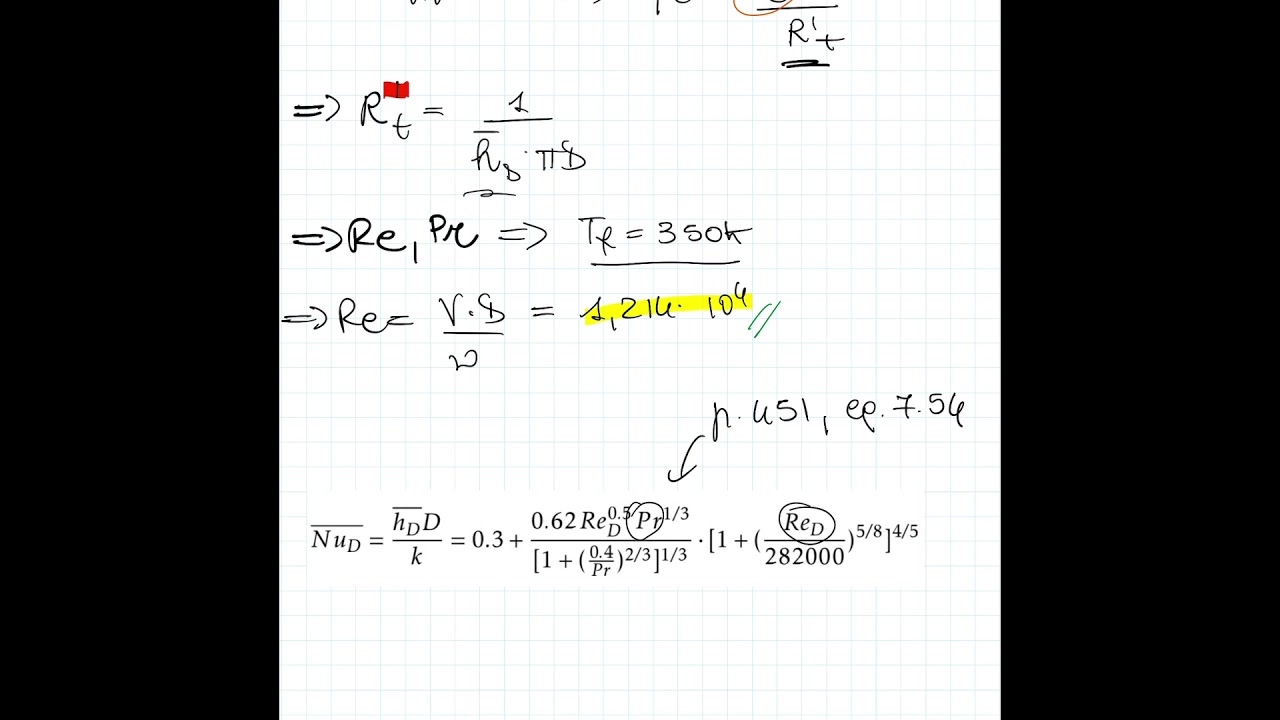 R't
=> R't = 1 / h̄D · πD
=> Re, Pr => Tf = 350K
=> Re = V·D / ν = 1,214· 10^4
p. 451, eq. 7.54
\overline{Nu_D} = \frac{\overline{h_D}D}{k} = 0.3 + \frac{0.62 Re_D^{0.5} Pr^{1/3}}{[1 + (\frac{0.4}{Pr})^{2/3}]^{1/3}} · [1 + (\frac{Re_D}{282000})^{5/8}]^{4/5}